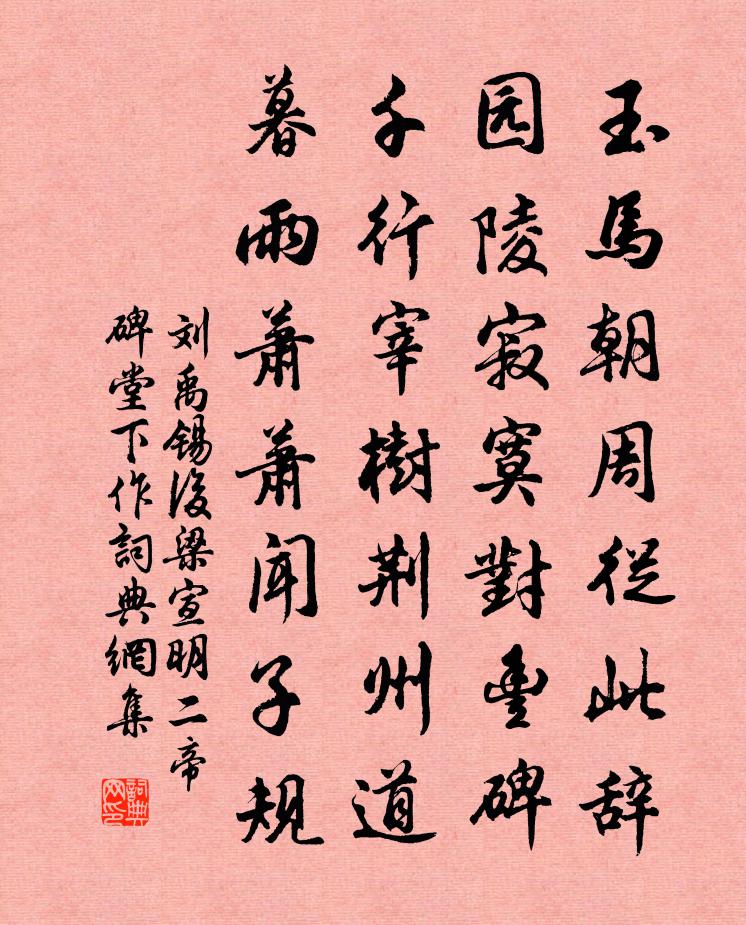 玉馬朝周從此辞
园陵寂寞對豐碑
千行宰樹荆州道
暮雨蕭蕭闻子规
刘禹锡後梁宣明二帝
碑堂下作詞典網集
詞典网印